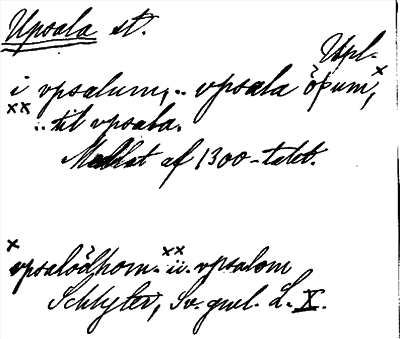 Upsala st.
Upl.
i vpsalum, .. vpsala öþum, ×
×× .. til vpsala.
Mellat af 1300-talet.
× vpsalöþhom. ×× ii. vpsalom
Schlyter, Sv. gml. L. X.